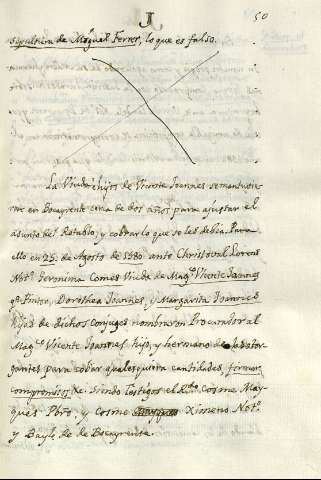 50
sepultura de Miguel Ferrer, lo que es falso.
La Viuda é hijos de Vicente Joannes se mantuvie
ron en Bocayrente cerca de dos años para ajustar el
asunto del Retablo, y cobrar lo que se les debia. Para
ello en 25. de Agosto de 1580 ante Christoval Lorens
Notº. Geronima Comes Viuda de Magº. Vicente Joannes
qº. Pintor, Dorothea Joannes, y Margarita Joannes
hijas de dichos Conjuges nombraron Procurador al
Magº. Vicente Joannes hijo, y hermano de las otor
gantes para cobrar qualesquiera cantidades, firmar
compromisos &c. siendo testigos el Rdo. Cosme Mar
ques Pbro, y Cosme Ximeno Notº.
y Bayle de Bocayrente.